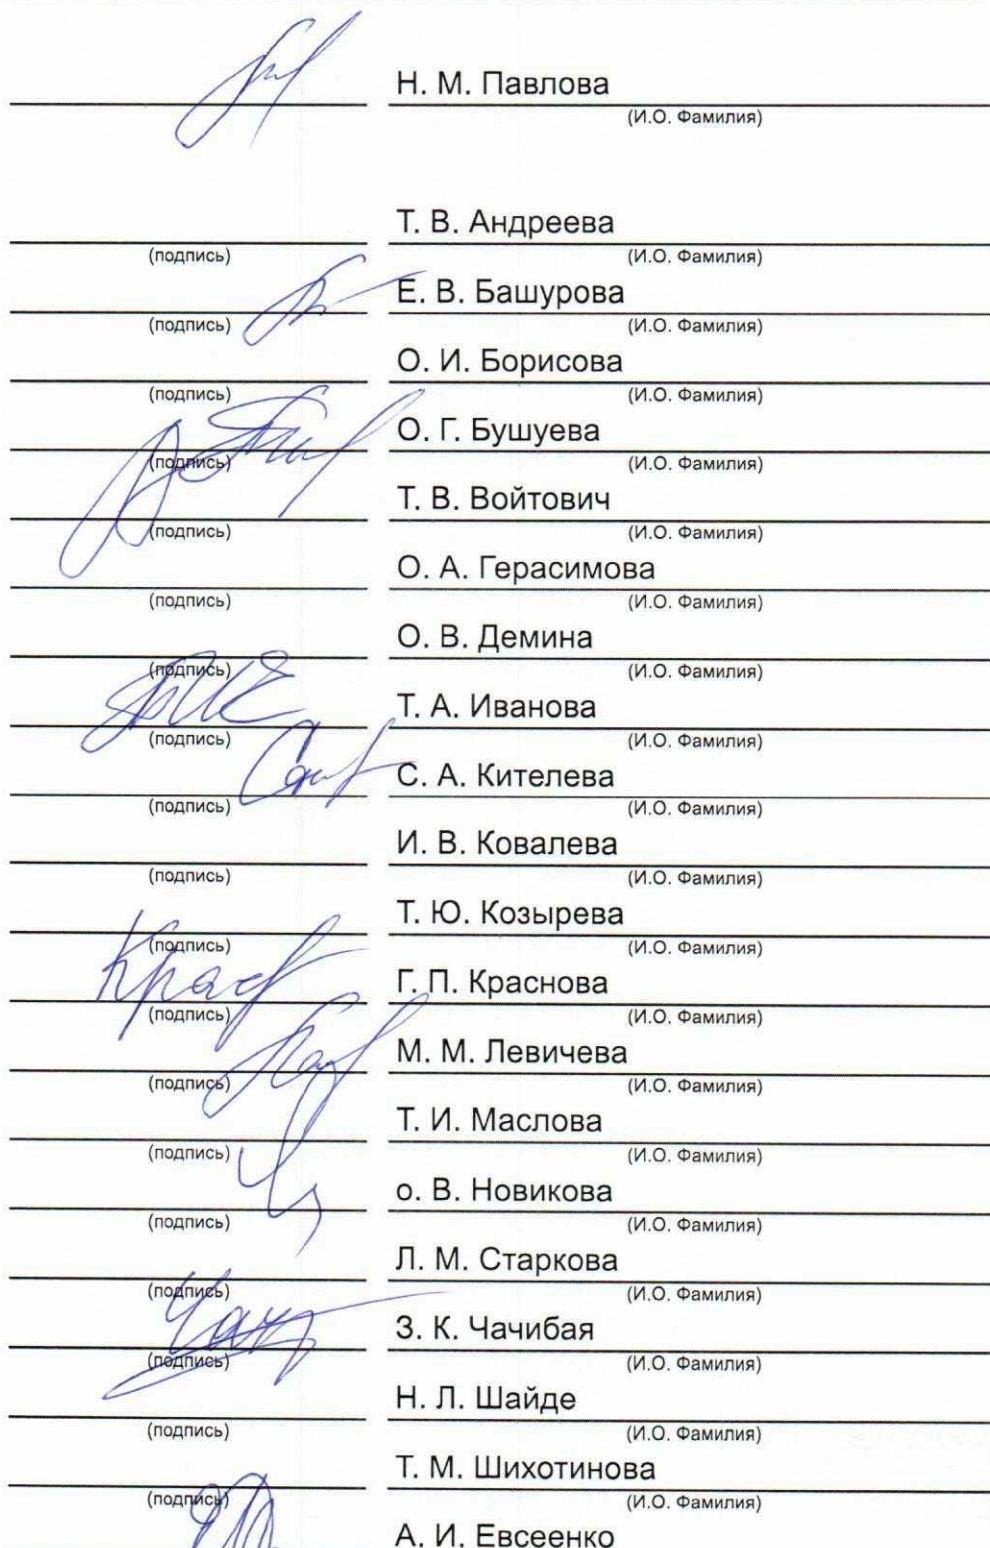 Н. М. Павлова
(И.О. Фамилия)
Т. В. Андреева
(подпись) (И.О. Фамилия)
Е. В. Башурова
(подпись) (И.О. Фамилия)
О. И. Борисова
(подпись) (И.О. Фамилия)
О. Г. Бушуева
(подпись) (И.О. Фамилия)
Т. В. Войтович
(подпись) (И.О. Фамилия)
О. А. Герасимова
(подпись) (И.О. Фамилия)
О. В. Демина
(подпись) (И.О. Фамилия)
Т. А. Иванова
(подпись) (И.О. Фамилия)
С. А. Кителева
(подпись) (И.О. Фамилия)
И. В. Ковалева
(подпись) (И.О. Фамилия)
Т. Ю. Козырева
(подпись) (И.О. Фамилия)
Г. П. Краснова
(подпись) (И.О. Фамилия)
М. М. Левичева
(подпись) (И.О. Фамилия)
Т. И. Маслова
(подпись) (И.О. Фамилия)
о. В. Новикова
(подпись) (И.О. Фамилия)
Л. М. Старкова
(подпись) (И.О. Фамилия)
З. К. Чачибая
(подпись) (И.О. Фамилия)
Н. Л. Шайде
(подпись) (И.О. Фамилия)
Т. М. Шихотинова
(подпись) (И.О. Фамилия)
А. И. Евсеенко